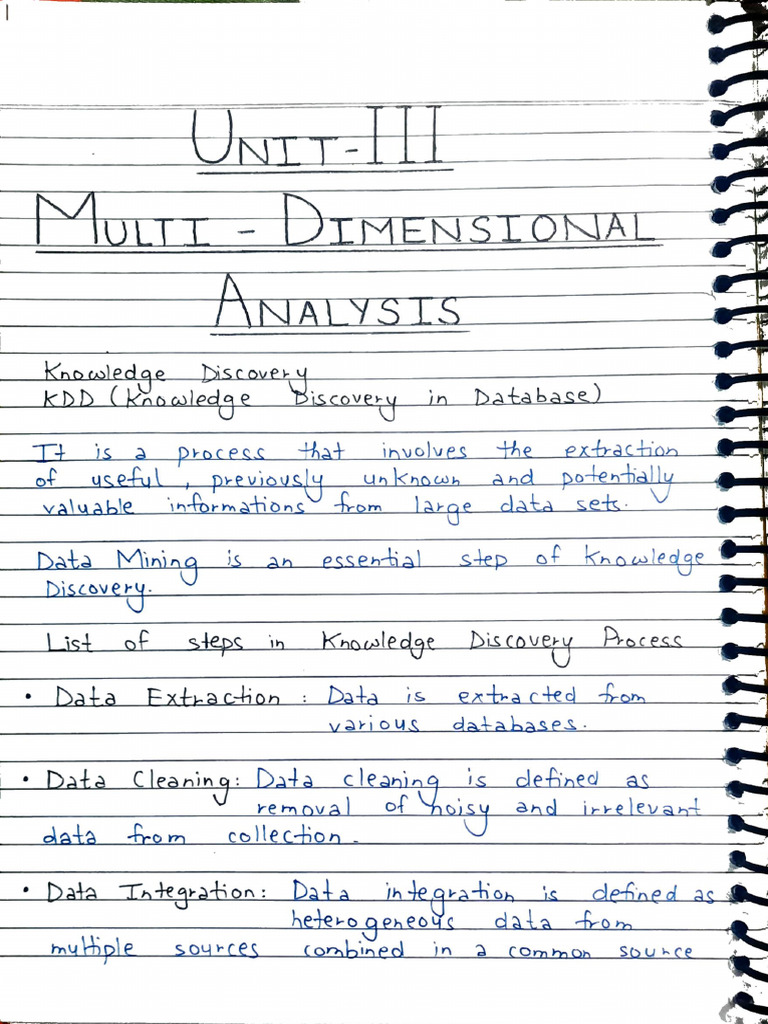 UNIT-III
MULTI - DIMENSIONAL
ANALYSIS
Knowledge Discovery
KDD (Knowledge Discovery in Database)
It is a process that involves the extraction
of useful, previously unknown and potentially
valuable informations from large data sets.
Data Mining is an essential step of Knowledge
Discovery.
List of steps in Knowledge Discovery Process
• Data Extraction : Data is extracted from
various databases.
• Data Cleaning: Data cleaning is defined as
removal of noisy and irrelevant
data from collection.
• Data Integration: Data integration is defined as
heterogeneous data from
multiple sources combined in a common source